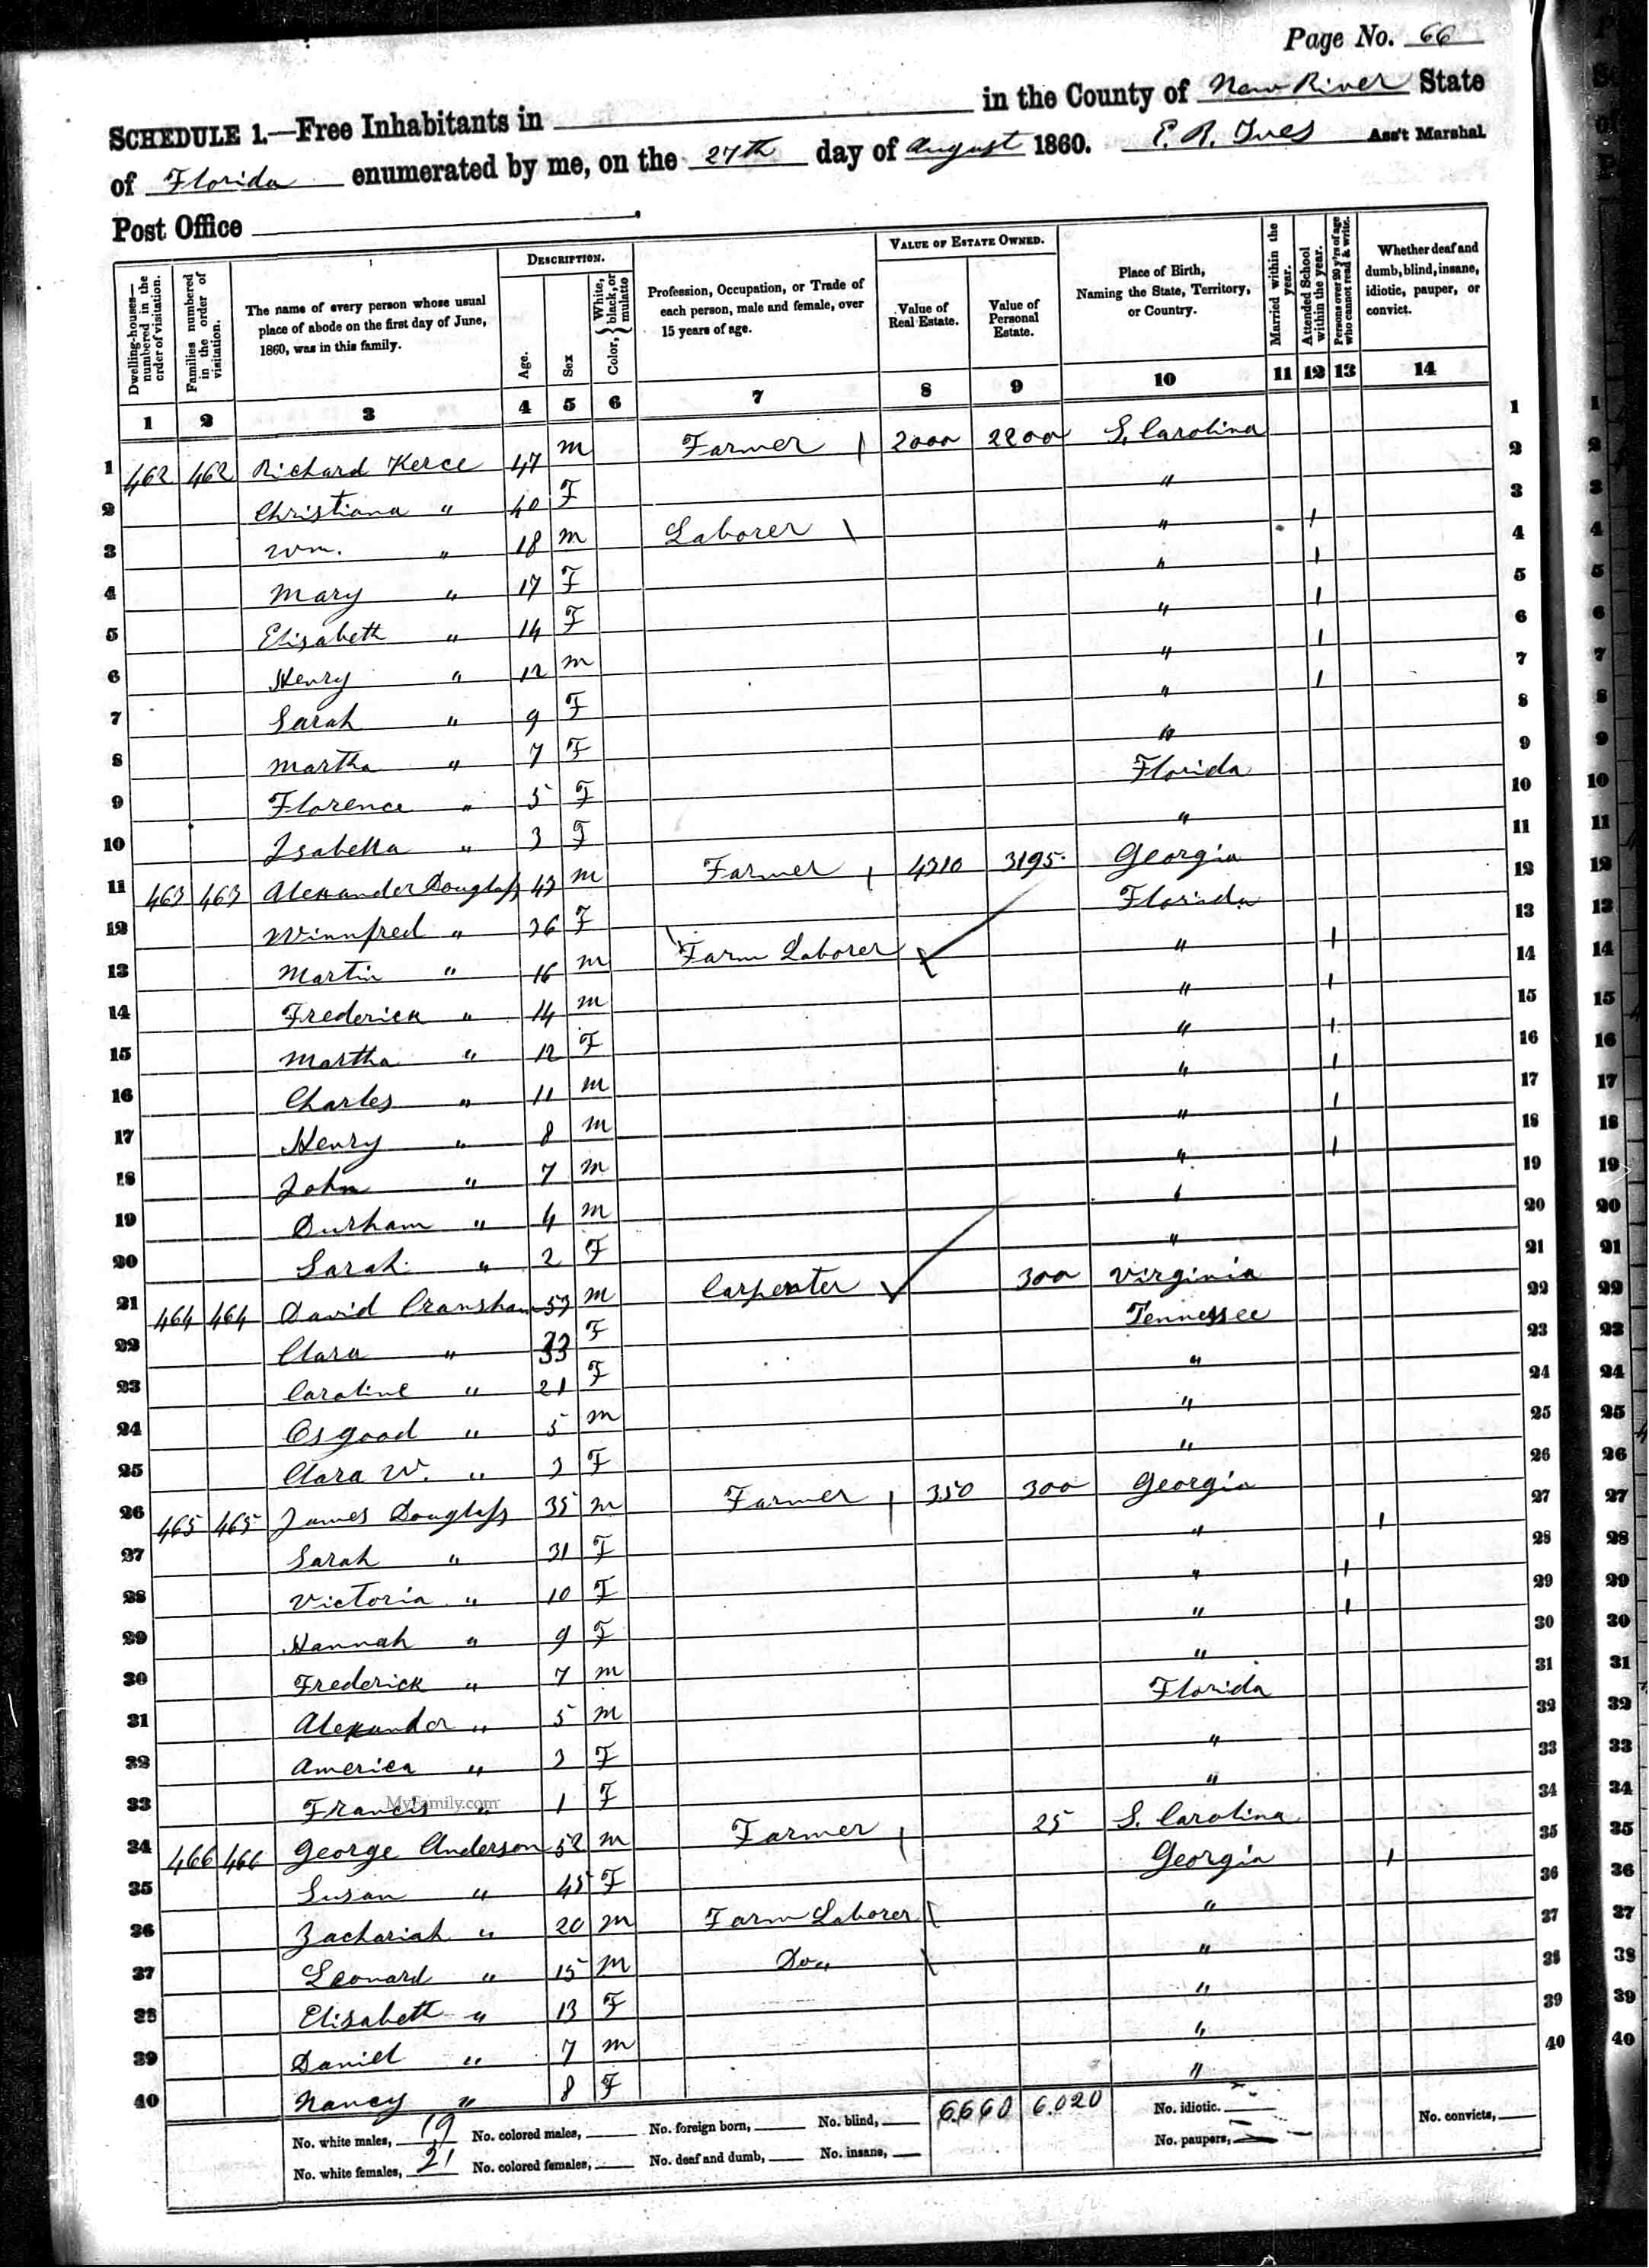 Page No. 66
SCHEDULE 1.—Free Inhabitants in ______ in the County of New River State
of Florida enumerated by me, on the 27th day of August 1860. E. R. Ives Ass't Marshal.
Post Office ______
Dwelling-houses—numbered in the order of visitation. Families numbered in the order of visitation. The name of every person whose usual place of abode on the first day of June, 1860, was in this family. DESCRIPTION. Age. Sex Color, { White, black, or mulatto Profession, Occupation, or Trade of each person, male and female, over 15 years of age. VALUE OF ESTATE OWNED. Value of Real Estate. Value of Personal Estate. Place of Birth, Naming the State, Territory, or Country. Married within the year. Attended School within the year. Persons over 20 y'rs of age who cannot read & write. Whether deaf and dumb, blind, insane, idiotic, pauper, or convict.
1 2 3 4 5 6 7 8 9 10 11 12 13 14
1 462 462 Richard Kerce 47 m Farmer 2000 2200 S. Carolina 1
2 Christiana " 40 F " 2
3 Wm. " 18 m Laborer " 1 3
4 Mary " 17 F " 1 4
5 Elisabeth " 14 F " 1 5
6 Henry " 12 m " 1 6
7 Sarah " 9 F " 1 7
8 Martha " 7 F " 8
9 Florence " 5 F Florida 9
10 Isabella " 3 F " 10
11 463 463 Alexander Douglass 43 m Farmer 4310 3195 Georgia 11
12 Winnfred " 36 F Florida 12
13 Martin " 16 m Farm Laborer " 1 13
14 Frederick " 14 m " 1 14
15 Martha " 12 F " 1 15
16 Charles " 11 m " 1 16
17 Henry " 8 m " 1 17
18 John " 7 m " 1 18
19 Durham " 4 m " 19
20 Sarah " 2 F " 20
21 464 464 David Cranshaw 53 m Carpenter 300 Virginia 21
22 Clara " 33 F Tennessee 22
23 Caroline " 21 F " 23
24 Osgood " 5 m " 24
25 Clara W. " 3 F " 25
26 465 465 James Douglass 35 m Farmer 350 300 Georgia 26
27 Sarah " 31 F " 1 27
28 Victoria " 10 F " 1 28
29 Hannah " 9 F " 1 29
30 Frederick " 7 m " 30
31 Alexander " 5 m Florida 31
32 America " 3 F " 32
33 Francis " 1 F " 33
MyFamily.com
34 466 466 George Anderson 52 m Farmer 25 S. Carolina 34
35 Susan " 45 F Georgia 1 35
36 Zachariah " 20 m Farm Laborer " 36
37 Leonard " 15 m Do " " 37
38 Elisabeth " 13 F " 38
39 Daniel " 7 m " 39
40 Nancy " 8 F " 40
No. white males, 19 No. colored males, ___ No. foreign born, ___ No. blind, ___ 6.660 6.020 No. idiotic. ___ No. convicts, ___
No. white females, 21 No. colored females, ___ No. deaf and dumb, ___ No. insane, ___ No. paupers, ___